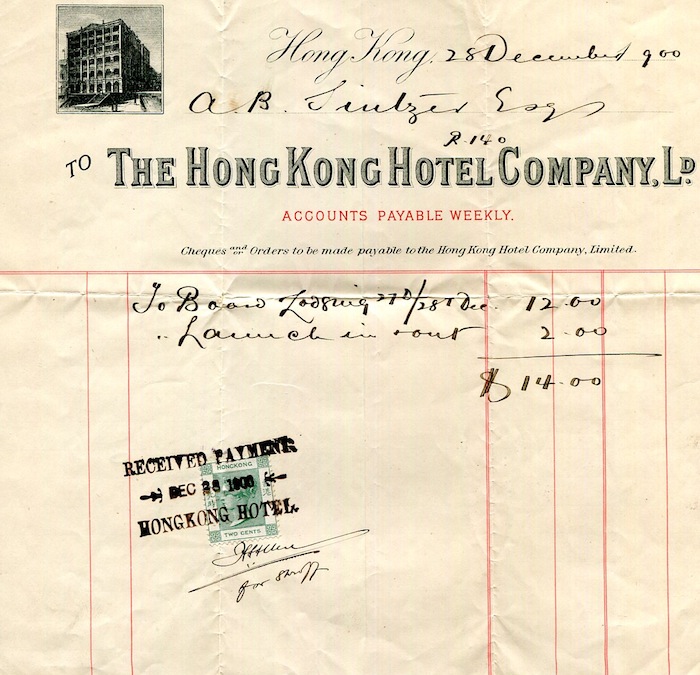 Hong Kong, 28 December 900
A. B.
R. 140
TO THE HONG KONG HOTEL COMPANY, LD.
ACCOUNTS PAYABLE WEEKLY.
Cheques and/or Orders to be made payable to the Hong Kong Hotel Company, Limited.
To Board Lodging 27th/28th Dec. 12.00
" Launch in & out 2.00
$ 14.00
RECEIVED PAYMENT
HONGKONG
DEC 28 1900
HONGKONG HOTEL.
TWO CENTS
for Shroff